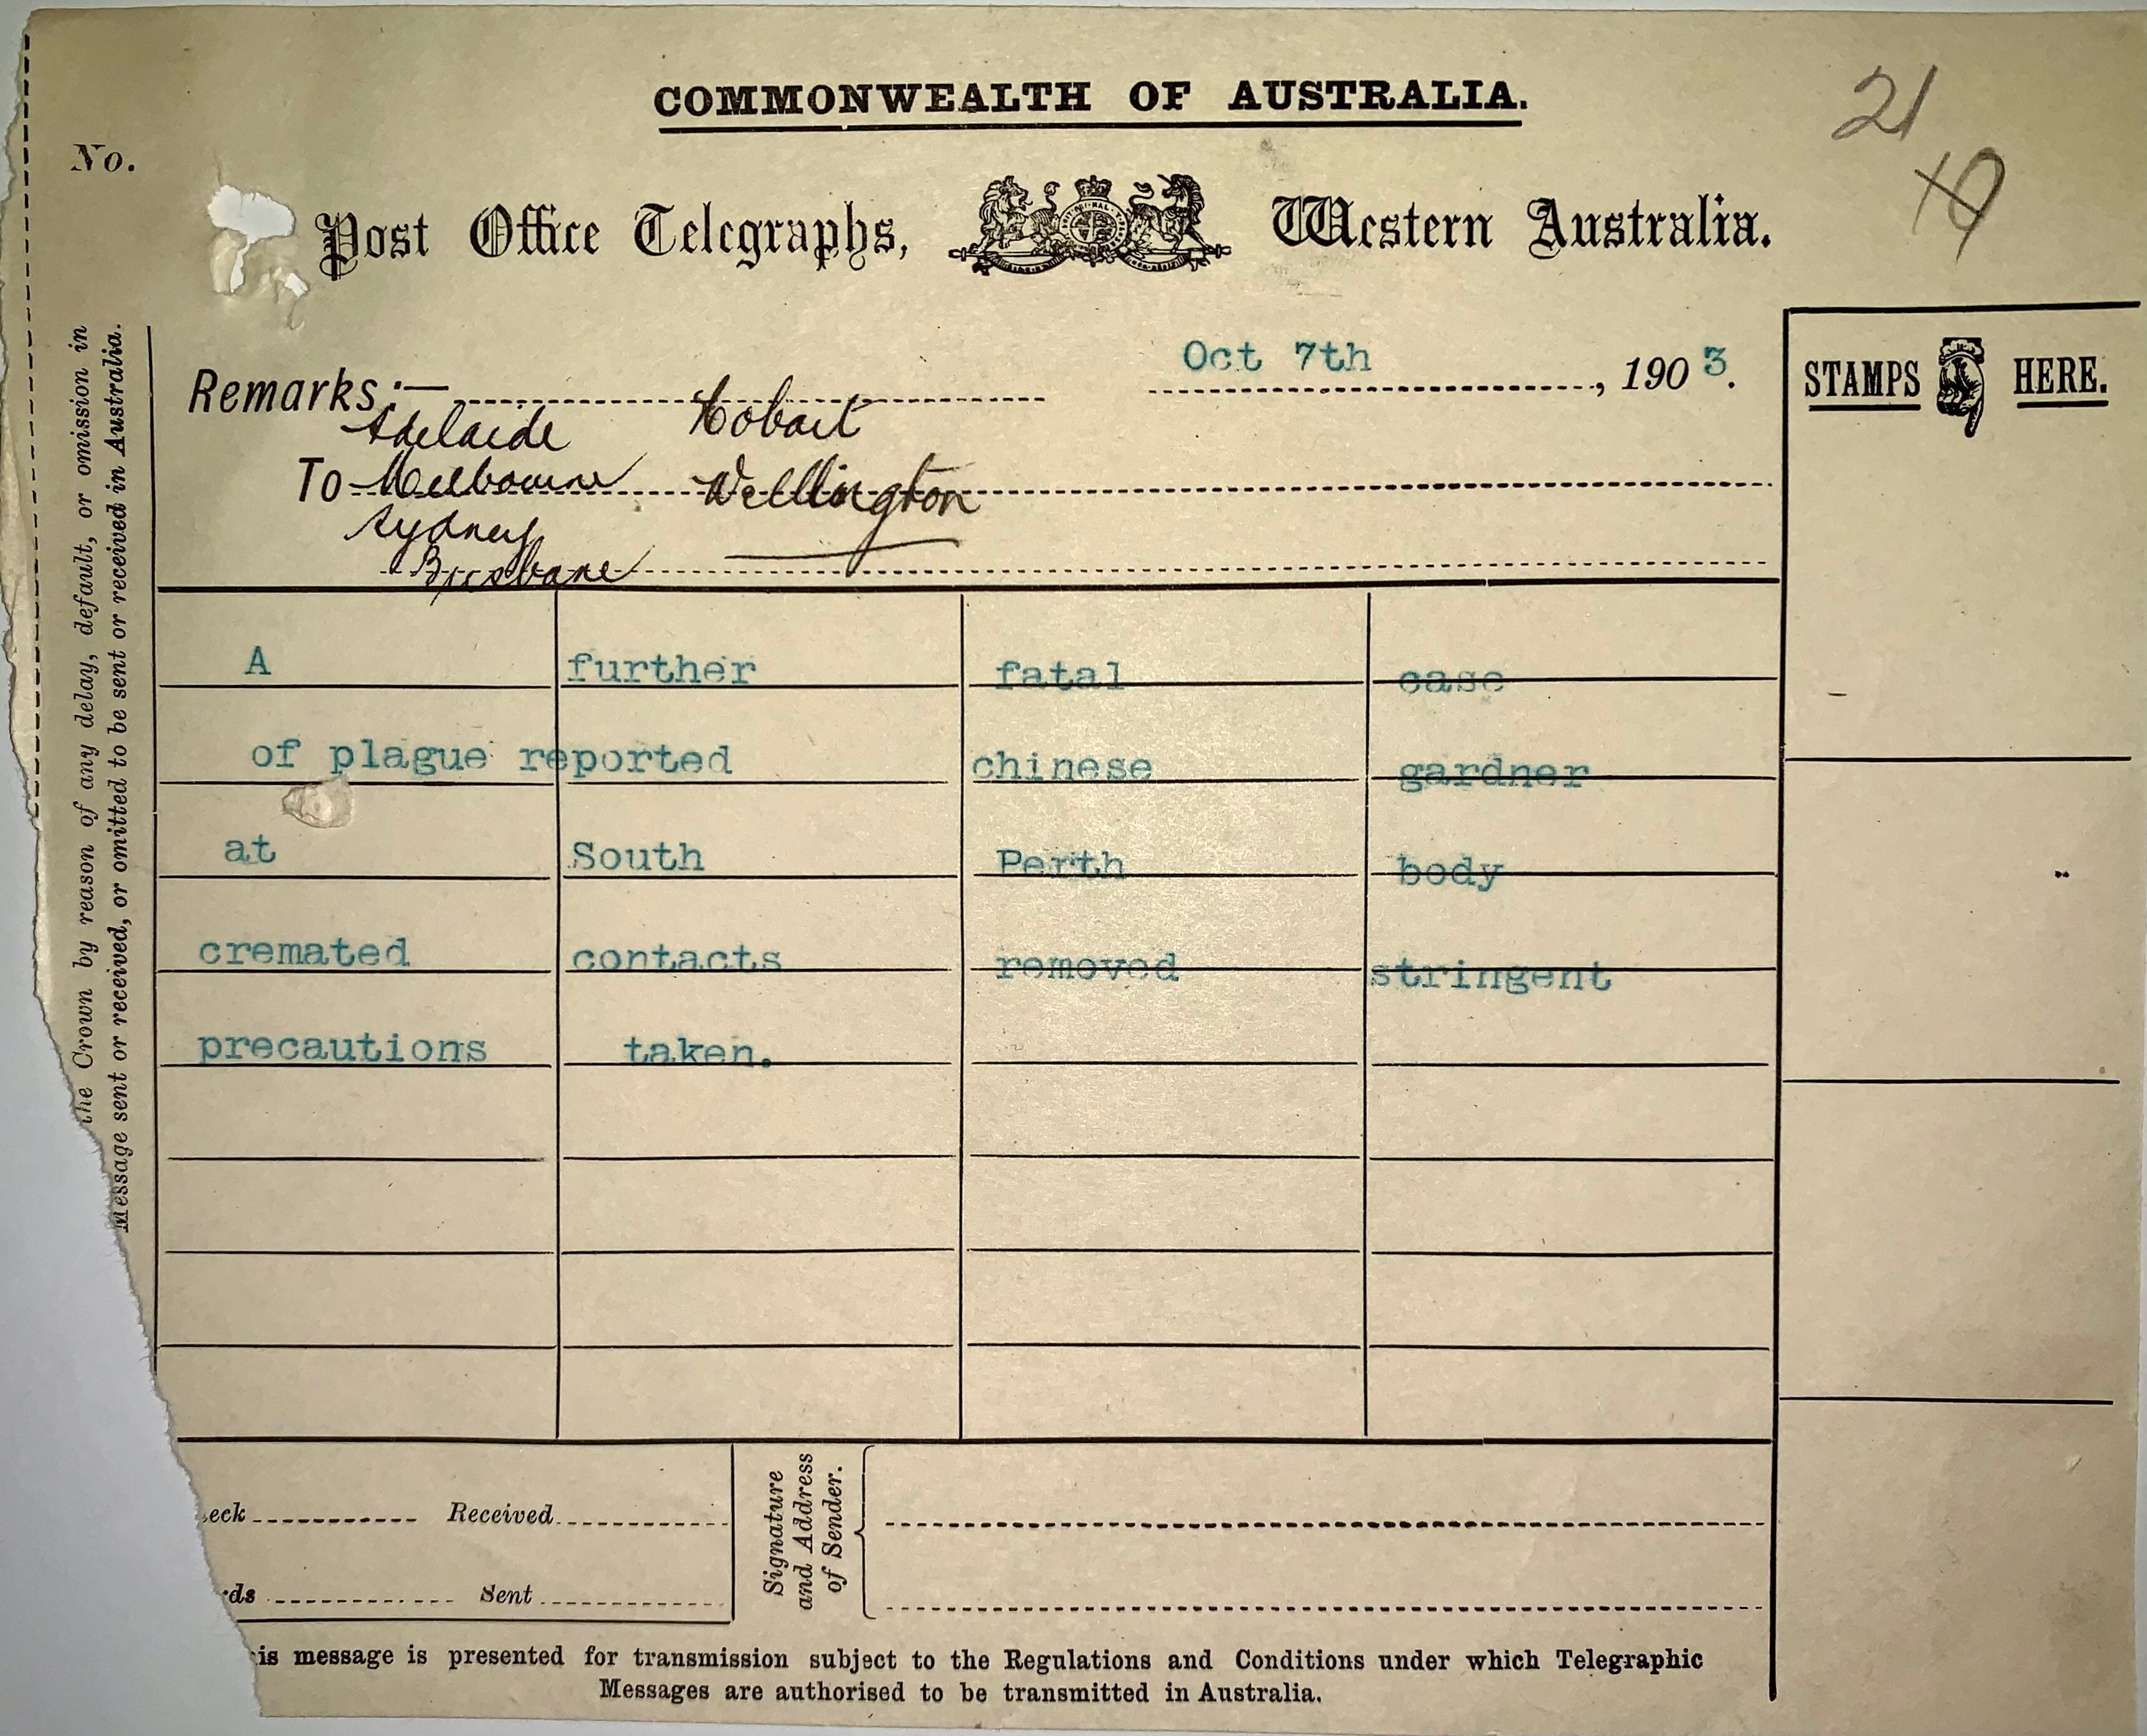 COMMONWEALTH OF AUSTRALIA.
21
No.
Post Office Telegraphs, Western Australia.
Oct 7th, 1903.
STAMPS HERE.
Remarks:—
Adelaide Hobart
To Melbourne Wellington
Sydney
Brisbane
A further fatal case
of plague reported chinese gardner
at South Perth body
cremated contacts removed stringent
precautions taken.
the Crown by reason of any delay, default, or omission in
Message sent or received, or omitted to be sent or received in Australia.
eck Received
rds Sent
Signature
and Address
of Sender.
is message is presented for transmission subject to the Regulations and Conditions under which Telegraphic
Messages are authorised to be transmitted in Australia.